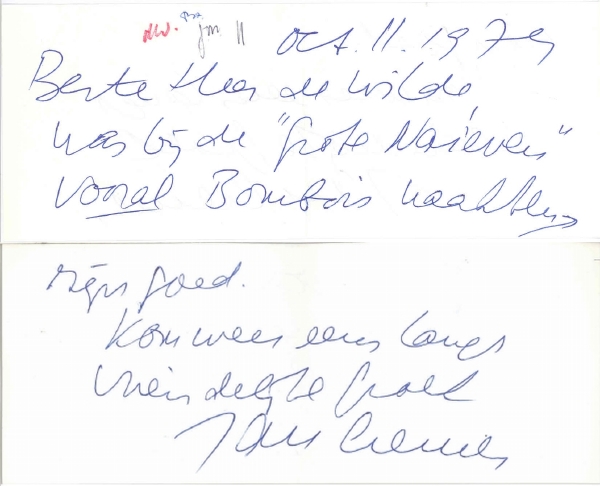 dW. jm 11
Oct. 11. 1974
Beste Heer de Wilde,
was bij de "Grote Naïeven"
Vooral Bombois
goed.
Kom weer eens langs
Vriendelijke groet
Jan Cremer